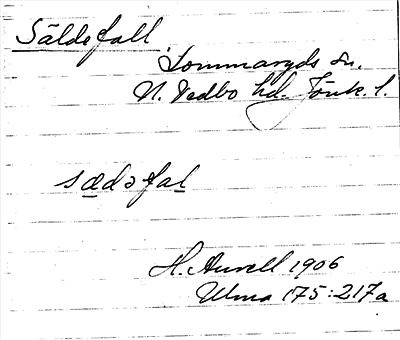 Säldefall
Sommaryds sn.
N. Vedbo hd. Jönk. l.
sædəfal
H. Anvell 1906
Ulma 175:217a